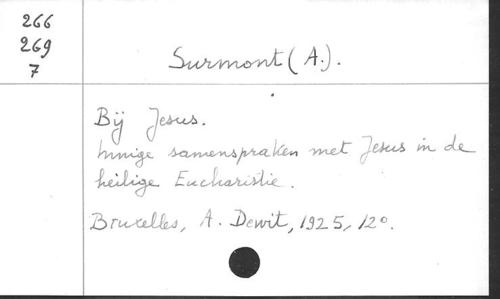 266
269
7
Surmont (A.).
Bij Jesus.
Innige samenspraken met Jesus in de
heilige Eucharistie.
Bruxelles, A. Dewit, 1925, 12°.